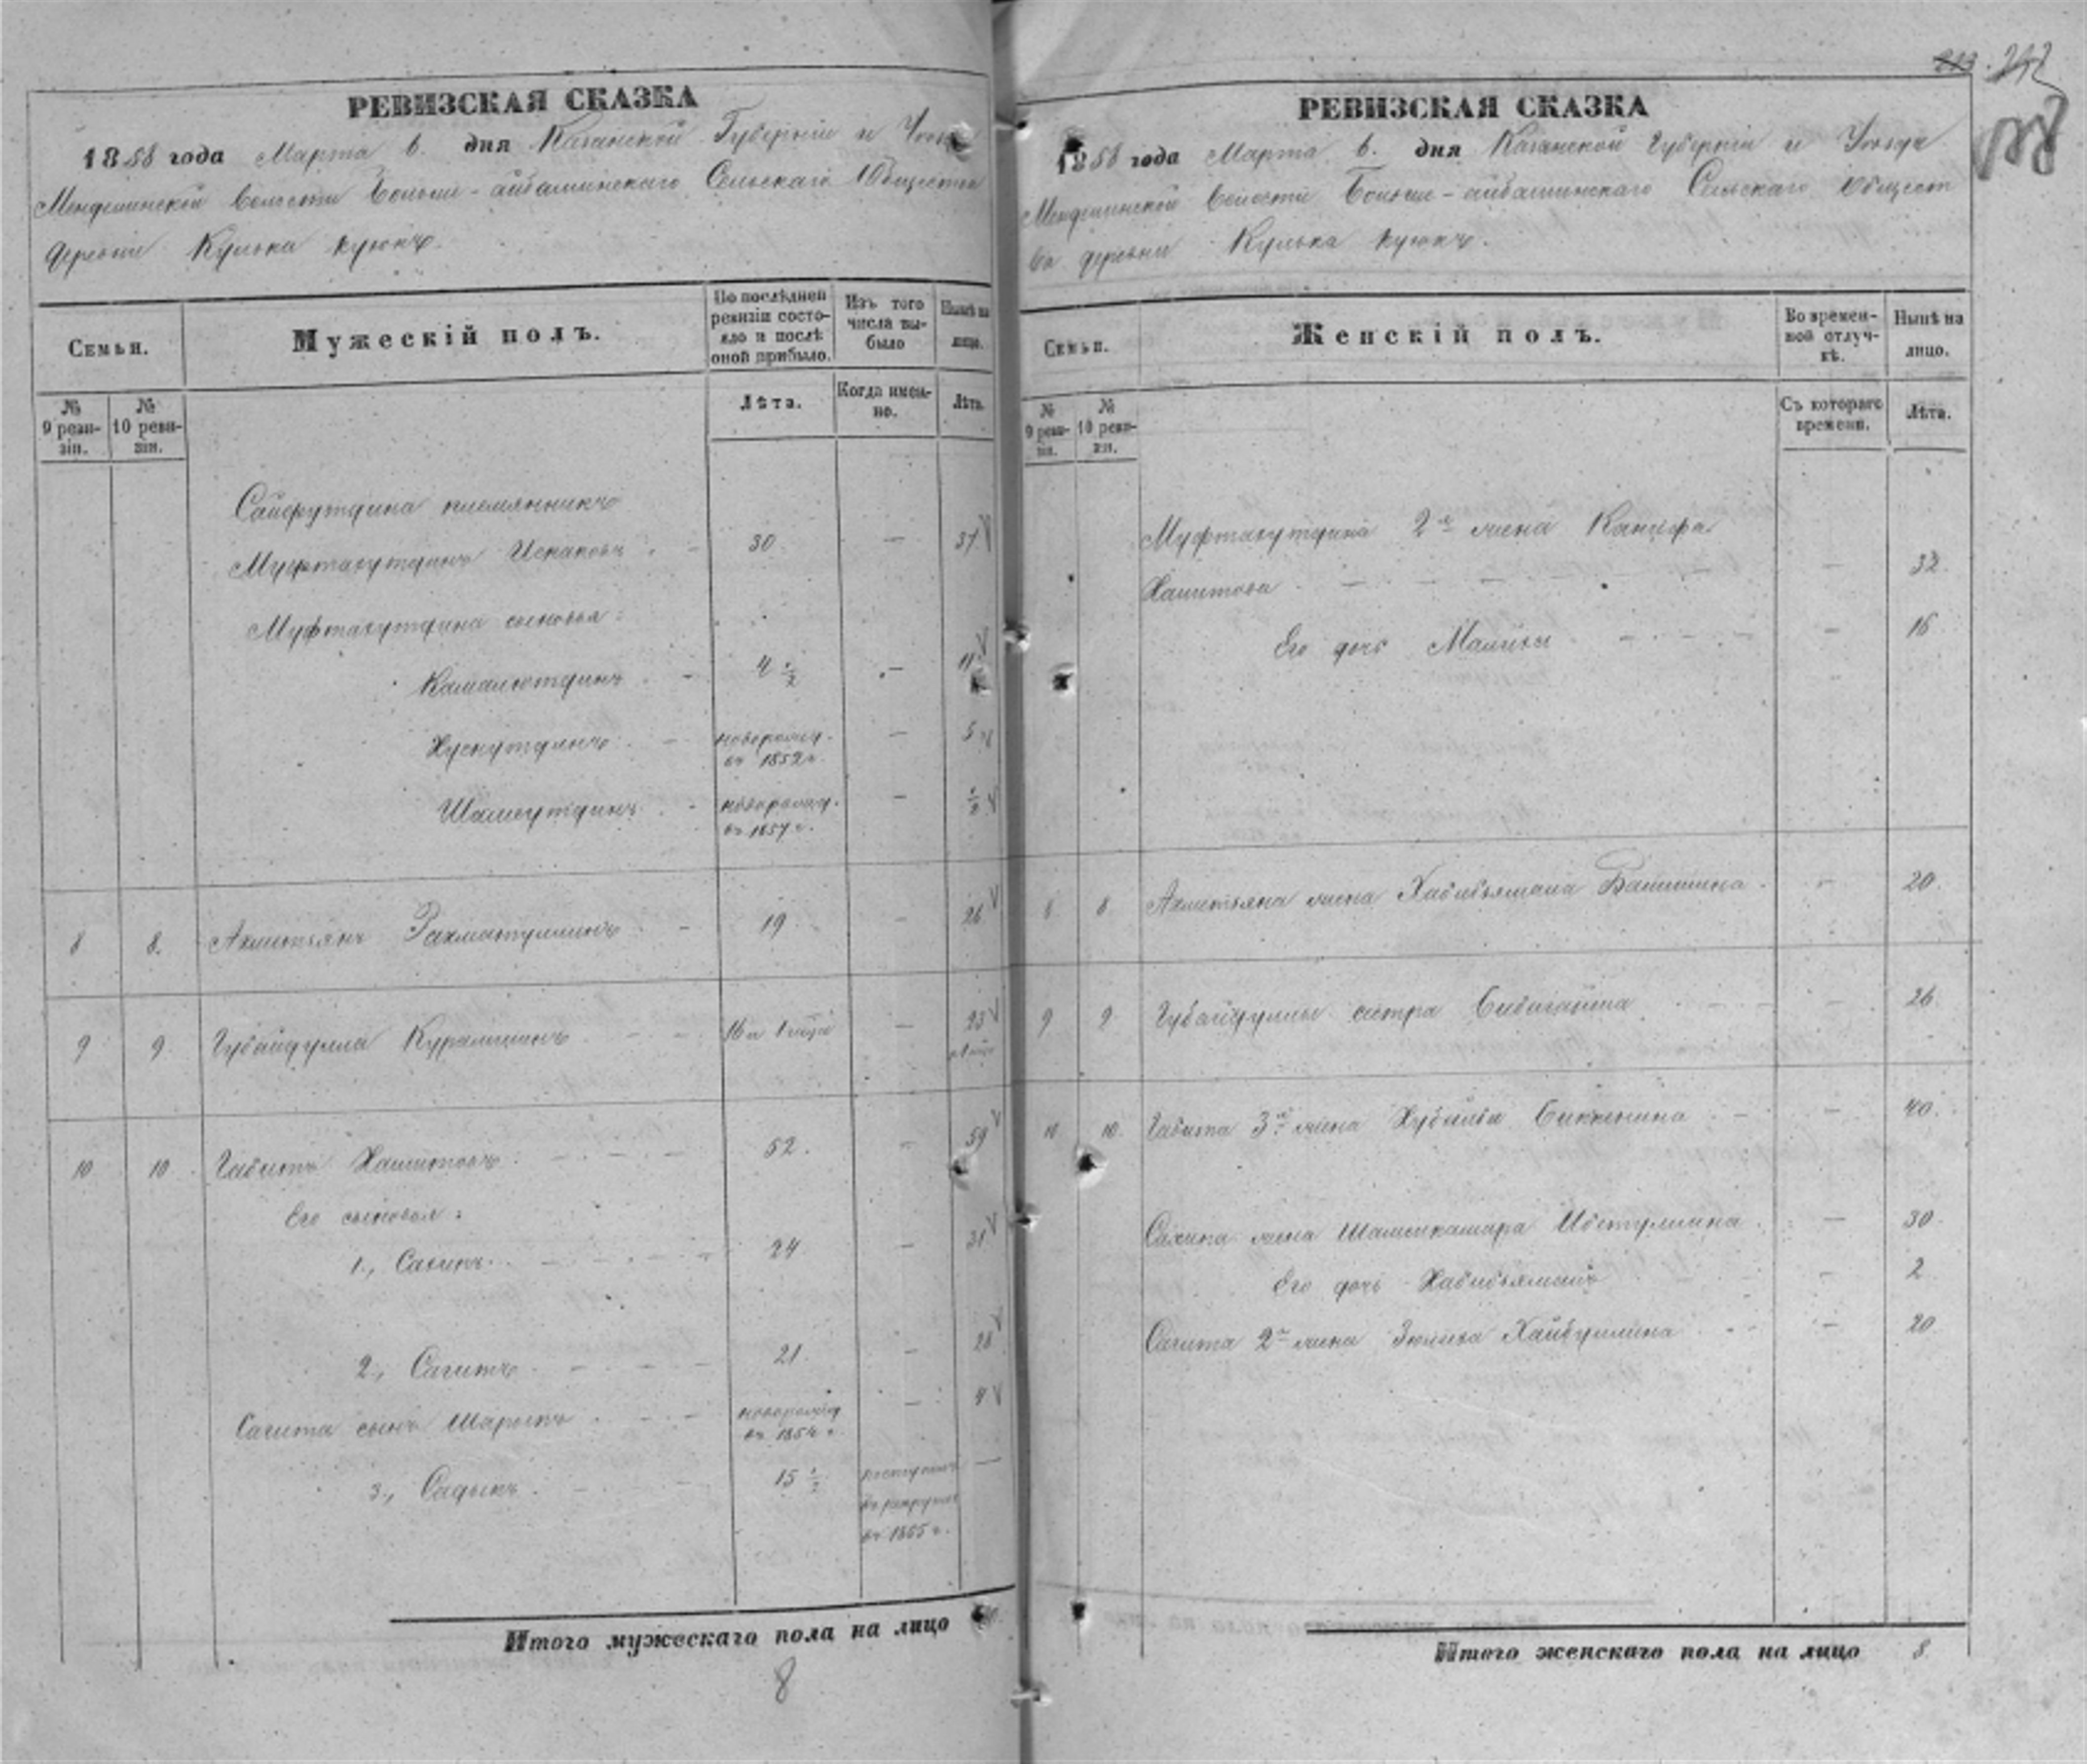 РЕВИЗСКАЯ СКАЗКА
1858 года Марта 6. дня Казанской Губернiи и Уезда
Менделинской Волости Больше-айбашинскаго Сельскаго Общества
деревни Кулька куюкъ.
Семьи.
Мужескiй полъ.
По послѣдней ревизiи состояло и послѣ оной прибыло.
Изъ того числа выбыло
Нынѣ на лицо.
№ 9 ревизiи.
№ 10 ревизiи.
Лѣта.
Когда именно.
Лѣта.
Сайфутдина племянникъ
Муфтахутдинъ Исхаковъ 30 — 37
Муфтахутдина сыновья:
Камалютдинъ 4 1/2 — 11 1/2
Хуснутдинъ новорожд. въ 1852 г. — 5
Шамсутдинъ новорожд. въ 1857 г. — 1/2
8 8. Ахметьянъ Рахматуллинъ 19 — 26
9 9 Губайдулла Курамшинъ 16 и — 23
10 10 Габитъ Хамитовъ 52. — 59
Его сыновья:
1., Сабитъ 24 — 31
2., Сагитъ 21. — 28
Сагита сынъ Шарыпъ новорожд. въ 1854 г. — 4
3., Садыкъ 15 1/2 поступилъ въ рекруты въ 1855 г. —
Итого мужескаго пола на лицо
8
213. 212
РЕВИЗСКАЯ СКАЗКА
1858 года Марта 6. дня Казанской Губернiи и Уезда
Менделинской Волости Больше-айбашинскаго Сельскаго Общест
ва деревни Кулька куюкъ.
Семьи.
Женскiй полъ.
Во временной отлучкѣ.
Нынѣ на лицо.
№ 9 ревизiи.
№ 10 ревизiи.
Съ котораго времени.
Лѣта.
Муфтахутдина 2я жена Канифа
Хамитова — 32.
Его дочь — 16
8 8 Ахметьяна жена Хабибъямала — 20.
9 9 Губайдуллы сестра — 26
10 10. Габита 3я жена Биккенина — 40.
жена Шамсикамара — 30
Его дочь Хабибъямалъ — 2
Сагита 2я жена Хайбуллина — 20
Итого женскаго пола на лицо 8